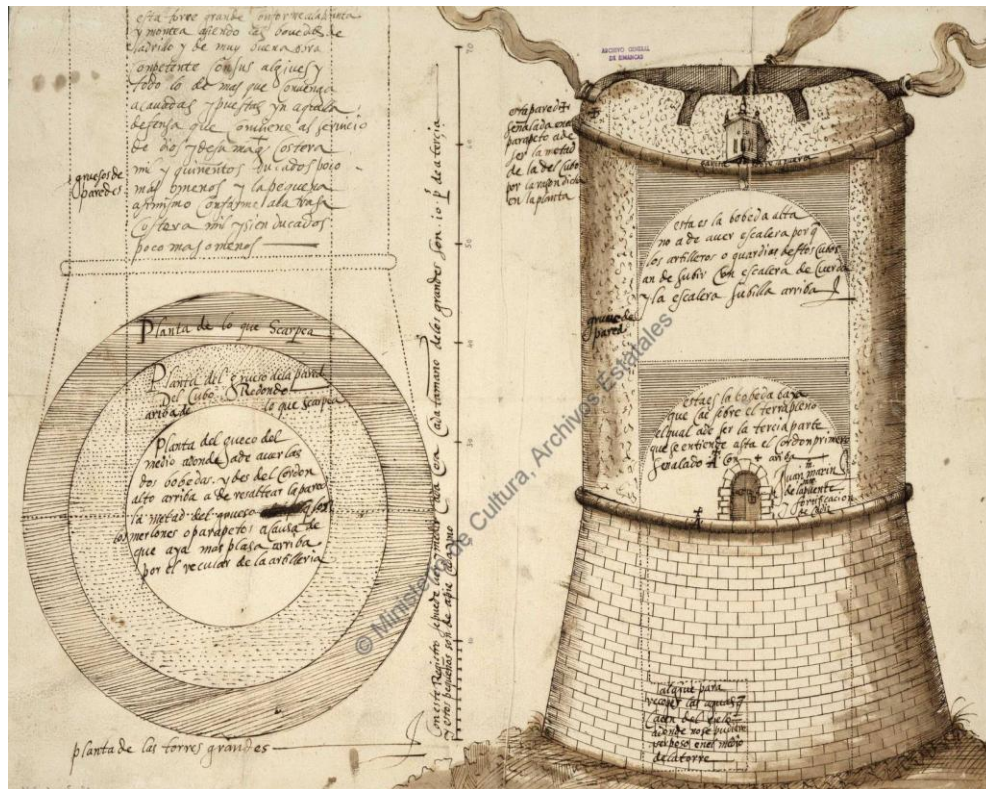 esta torre grande conforme a la planta
y montea siendo las bovedas de
ladrillo y de muy buena obra
conpetente con sus algives y
todo lo de mas que convenga
acavadas y puestas yn aquella
defensa que conviene al servicio
de dios y de su mag costera
mil y quinientos ducados poco
mas omenos y la pequeña
asimismo conforme a la traça
costera mil y sien ducados
poco mas omenos
gruesos de
paredes
Planta de lo que Scarpea
Planta del grueso de la pared
del Cubo Redondo
arriba de lo que Scarpea
Planta del gueco del
medio adonde sade aver las
dos bobedas y des del cordon
alto arriba a de resaltear la pared
la metad del grueso
los merlones o parapetos a causa de
que aya mas plasa arriba
por el recular de la artilleria
planta de las torres grandes
Con este Registro se puede la y medir cada cosa cada tamaño delos grandes son 10 ps de a tersia
y estos pequeños son de apie cada uno
10
20
30
40
50
60
70
ARCHIVO GENERAL
DE SIMANCAS
esta pared
señalada enel
parapeto ade
ser la metad
de la del cubo
por la razon dicha
en la planta
esta es la bobeda alta
no a de aver escalera por q
los artilleros o guardias destos cubos
an de subir con escalera de cuerda
y la escalera subilla arriba
grueso de
pared
esta es la bobeda baxa
que cae sobre el terrapleno
el qual ade ser la tercia parte
que se entiende asta el cordon primero
señalado A con + arriba
Juan marin
de la puente
fortificacion
de Cadiz
algive para
recoger las aguas q
caen del cielo
adonde no se pudiere
ser poso enel medio
de la torre
© Ministerio de Cultura, Archivos Estatales